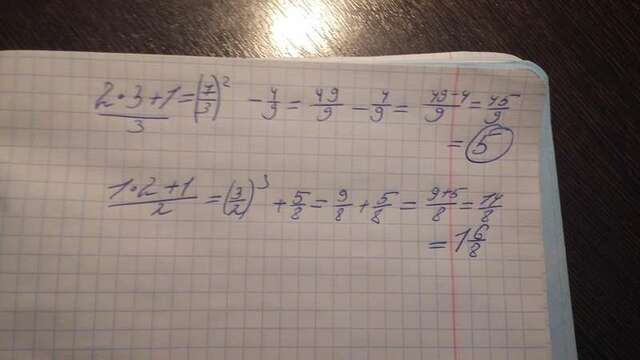 (2·3+1)/3 = (7/3)² - 4/9 = 49/9 - 4/9 = (49-4)/9 = 45/9
= 5
(1·2+1)/2 = (3/2)³ + 5/8 = 9/8 + 5/8 = (9+5)/8 = 14/8
= 1 6/8